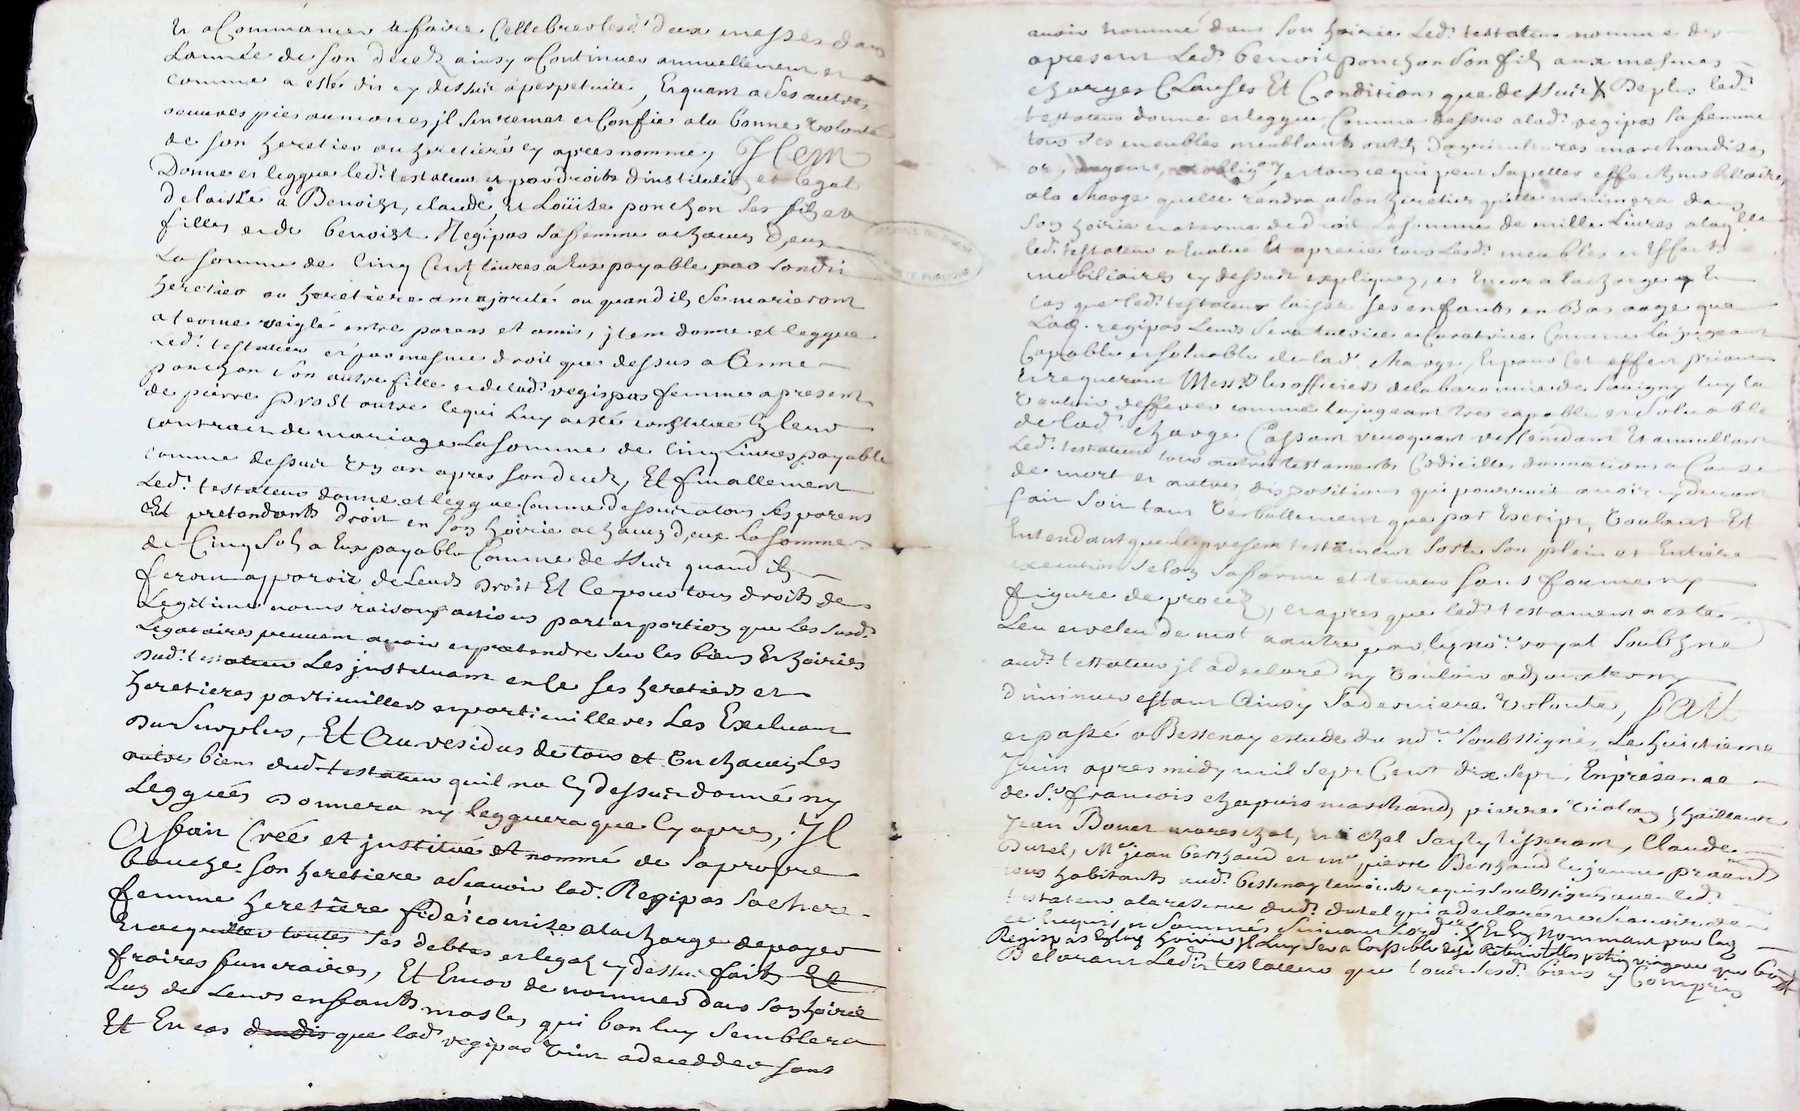 et a Commancer a faire Cellebrer lesd. deux messes dans
Lannée de son decedz ainsy a Continuer annuellement et a
comme a esté dit cy dessus a perpetuité, Et quant a ses autres
oeuvres pies aumones, jl sen remet et Confie a la bonne volonté
de son heretier ou heretiere cy apres nommé, Item
Donne et leggue led. testateur et par droits d'institution et legat
delaissé a Benoist, claude, et Loüise ponchon ses fils et
filles et de benoist Regipas sa femme a chacun d'eux
La somme de Cinq Cent livres a Eux payable par sondit
heretier ou heretiere a majorité ou quand ils se marieront
a terme reiglé entre parens et amis, jtem donne et leggue
led. testateur et par mesme droit que dessus a Anne
ponchon son autre fille et de lad. regipas femme a present
de pierre prost outre ce qui luy a esté constitué En leur
contract de mariage La somme de Cinq Livres payable
comme dessus Un an apres son decedz, Et finallement
Led. testateur donne et leggue Comme dessus a tous ses parens
Et pretendants droit en son hoirie a chacun d'eux La somme
de Cinq Sols a Eux payable Comme dessus quand ils
feront apparoir de Leurs Droit Et Ce pour tous droits de
Legitime noms raisons actions part et portion que Les susd.
Legataires peuvent avoir et pretendre sur les biens Et hoiries
dud. testateur Les jnstituant en ce ses heretiers et
heretieres particuilliers et particuillieres Les Excluant
du surplus, Et Au residus de tous et Un chacun Les
autres biens dud. testateur quil na Cy dessus donné ny
Leggués Donnera ny leggvera que Cy apres, Il
A fait Creé et jnstitué et nommé de sa propre
bouche son heretiere a Scavoir lad. Regipas sa chere
femme heretiere fideicomise a la charge de payer
Et acquitter toutes ses debtes et legats cy dessus faits Et
fraires funeraires, Et Encor de nommer dans son hoirie
Lun de Leurs enfants masles, qui bon luy semblera
Et En cas que lad. regipas vint a decedder sans
avoir nommé dans son hoirie Led. testateur nomme des
a present Led. benoit ponchon son fils aux mesmes
charges Clauses Et Conditions que dessus X De plus led.
testateur donne et leggue Comme dessus a lad. regipas sa femme
tous ses meubles meublants outils d'agricultures marchandises
or, argent, et tout ce qui peut sapeller effects mobiliaires
a la charge quelle rendra a son heretier quelle nommera dans
son hoirie et a terme de droit La somme de mille Livres a laquelle
led. testateur a Evalué Et aprecié tous Lesd. meubles et Effects
mobiliaires cy dessus expliquez, et Encor a la charge En
cas que led. testateur laisse ses enfants en Bas aage que
Lad. regipas Leurs Sera tutrice et Curatrice Comme la jugeant
Capable et solvable de lad. charge, Et pour Cet effect priant
Et requerant Mess. les officiers de la baronnie de Savigny luy la
vouloir defferer comme la jugeant tres capable et solvable
de lad. charge Cassant revoquant et annullant
Led. testateur tous autres testaments Codicilles donnations a Cause
de mort et autres dispositions quil pourroit avoir cy devant
fait soit tant Verballement que par Escript, Voulant Et
Entendant que le present testament sorte son plein et Entiere
execution selon sa forme et teneur sans forme ny
figure de procez, et apres que led. testament a esté
Leu et releu de mot a autre par le no.re royal soubzné
aud. testateur jl a declaré ny vouloir adjouxter ny
diminuer estant ainsy sa derniere volonté, fait
et passé a Bessenay estude du nd.re soubssigné Le huictieme
Juin apres midy mil sept Cent dix sept, En presence
de S.r francois chapuis marchand, pierre tailleur
Jean Bonet mareschal, michel tisserant, Claude
Dutel, M.e jean berthaud et m.e pierre Berthaud le jeune praticien
tous habitants aud. bessenay temoints requis soubssignés avec led.
testateur a la reserve dud. dutel qui a declaré ne scavoir
de ce Enquis et Sommés suivant Lord. X Et En nommant par lad.
Regipas En son hoirie jl Luy sera loysible de se Retenir
Declarant Led. testateur que tous sesd. biens y Compris